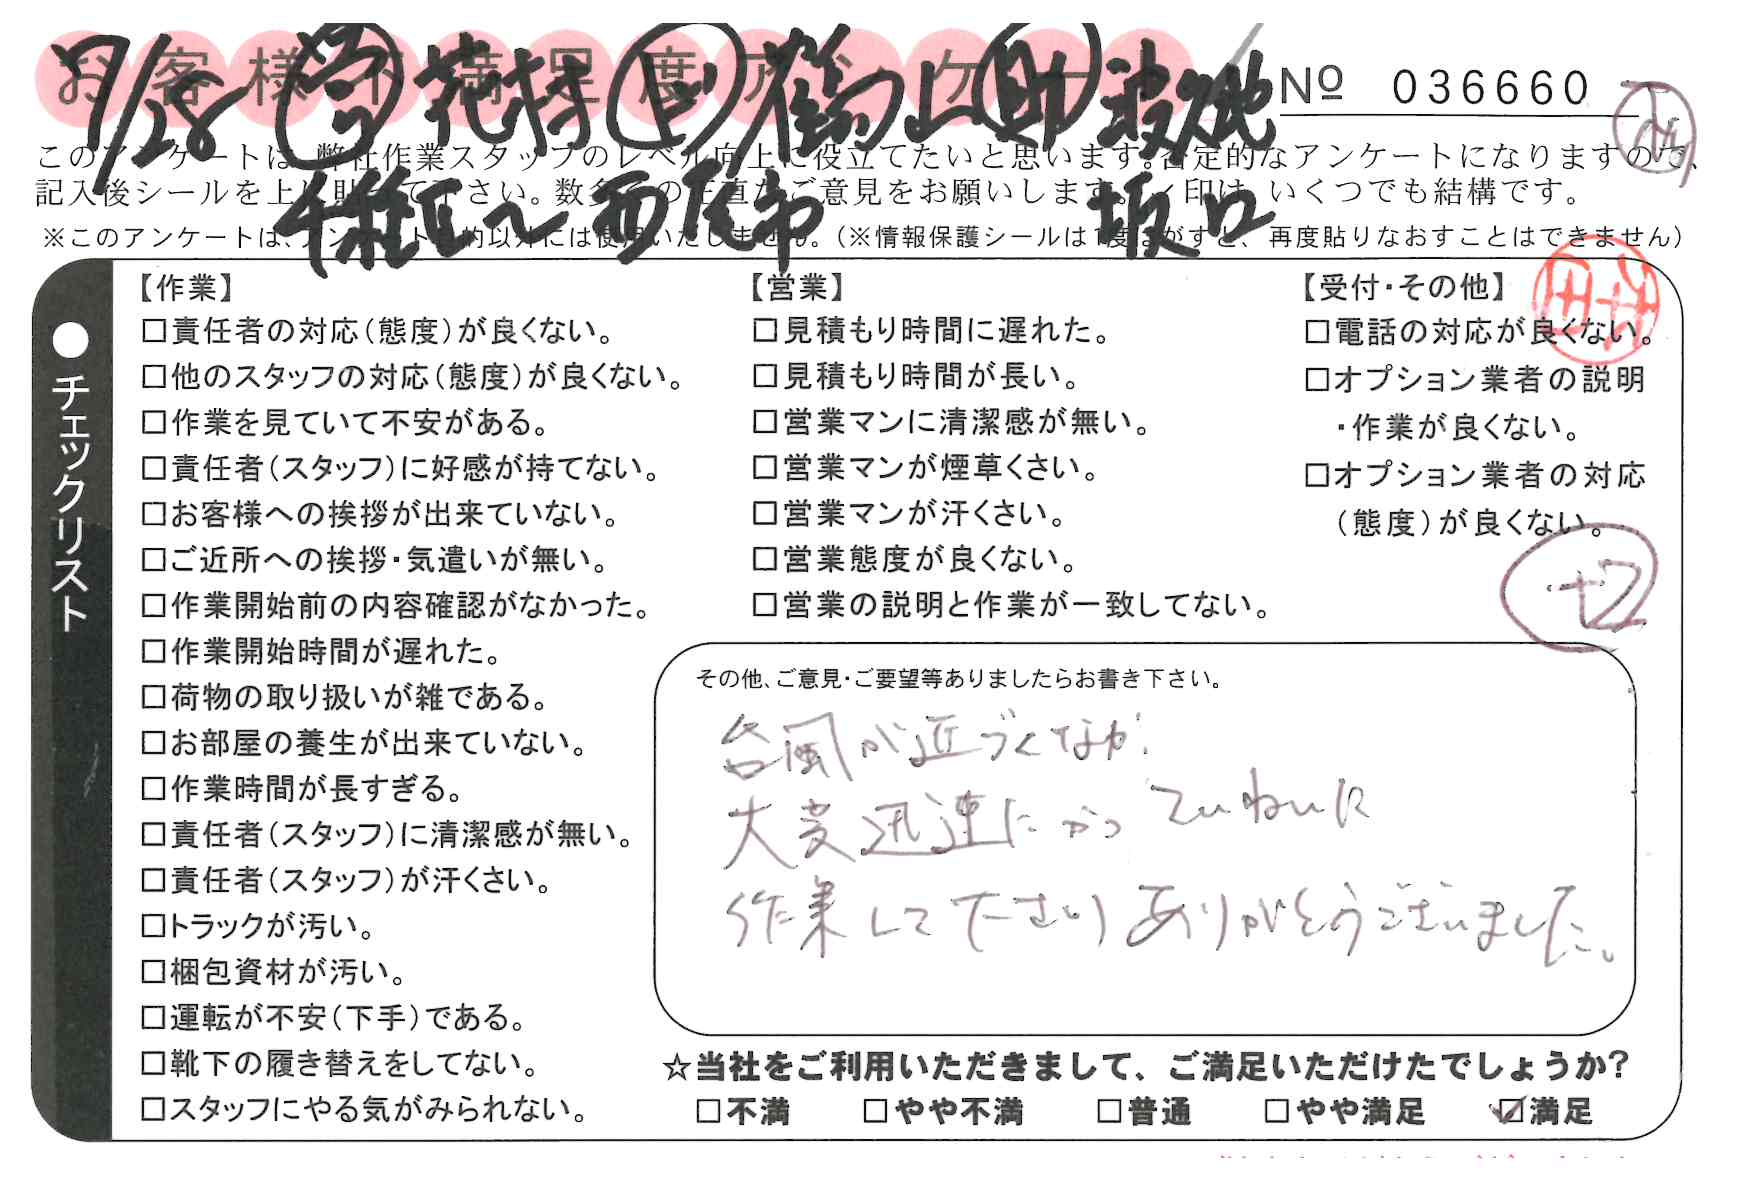 お客様不満足度アンケート
No 036660
7/28 営 花村 上 鶴山 助 菊地
千種区〜西尾市 坂口
このアンケートは、弊社作業スタッフのレベル向上に役立てたいと思います。否定的なアンケートになりますので、
記入後シールを上に貼って下さい。数多くの正直なご意見をお願いします。✓印は、いくつでも結構です。
※このアンケートは、アンケート目的以外には使用いたしません。（※情報保護シールは1度はがすと、再度貼りなおすことはできません）
●チェックリスト
【作業】
□責任者の対応（態度）が良くない。
□他のスタッフの対応（態度）が良くない。
□作業を見ていて不安がある。
□責任者（スタッフ）に好感が持てない。
□お客様への挨拶が出来ていない。
□ご近所への挨拶・気遣いが無い。
□作業開始前の内容確認がなかった。
□作業開始時間が遅れた。
□荷物の取り扱いが雑である。
□お部屋の養生が出来ていない。
□作業時間が長すぎる。
□責任者（スタッフ）に清潔感が無い。
□責任者（スタッフ）が汗くさい。
□トラックが汚い。
□梱包資材が汚い。
□運転が不安（下手）である。
□靴下の履き替えをしてない。
□スタッフにやる気がみられない。
【営業】
□見積もり時間に遅れた。
□見積もり時間が長い。
□営業マンに清潔感が無い。
□営業マンが煙草くさい。
□営業マンが汗くさい。
□営業態度が良くない。
□営業の説明と作業が一致してない。
【受付・その他】
□電話の対応が良くない。
□オプション業者の説明
・作業が良くない。
□オプション業者の対応
（態度）が良くない。
+2
その他、ご意見・ご要望等ありましたらお書き下さい。
台風が近づくなか、
大変迅速にかつ ていねいに
作業して下さりありがとうございました。
☆当社をご利用いただきまして、ご満足いただけたでしょうか?
□不満 □やや不満 □普通 □やや満足 ☑満足